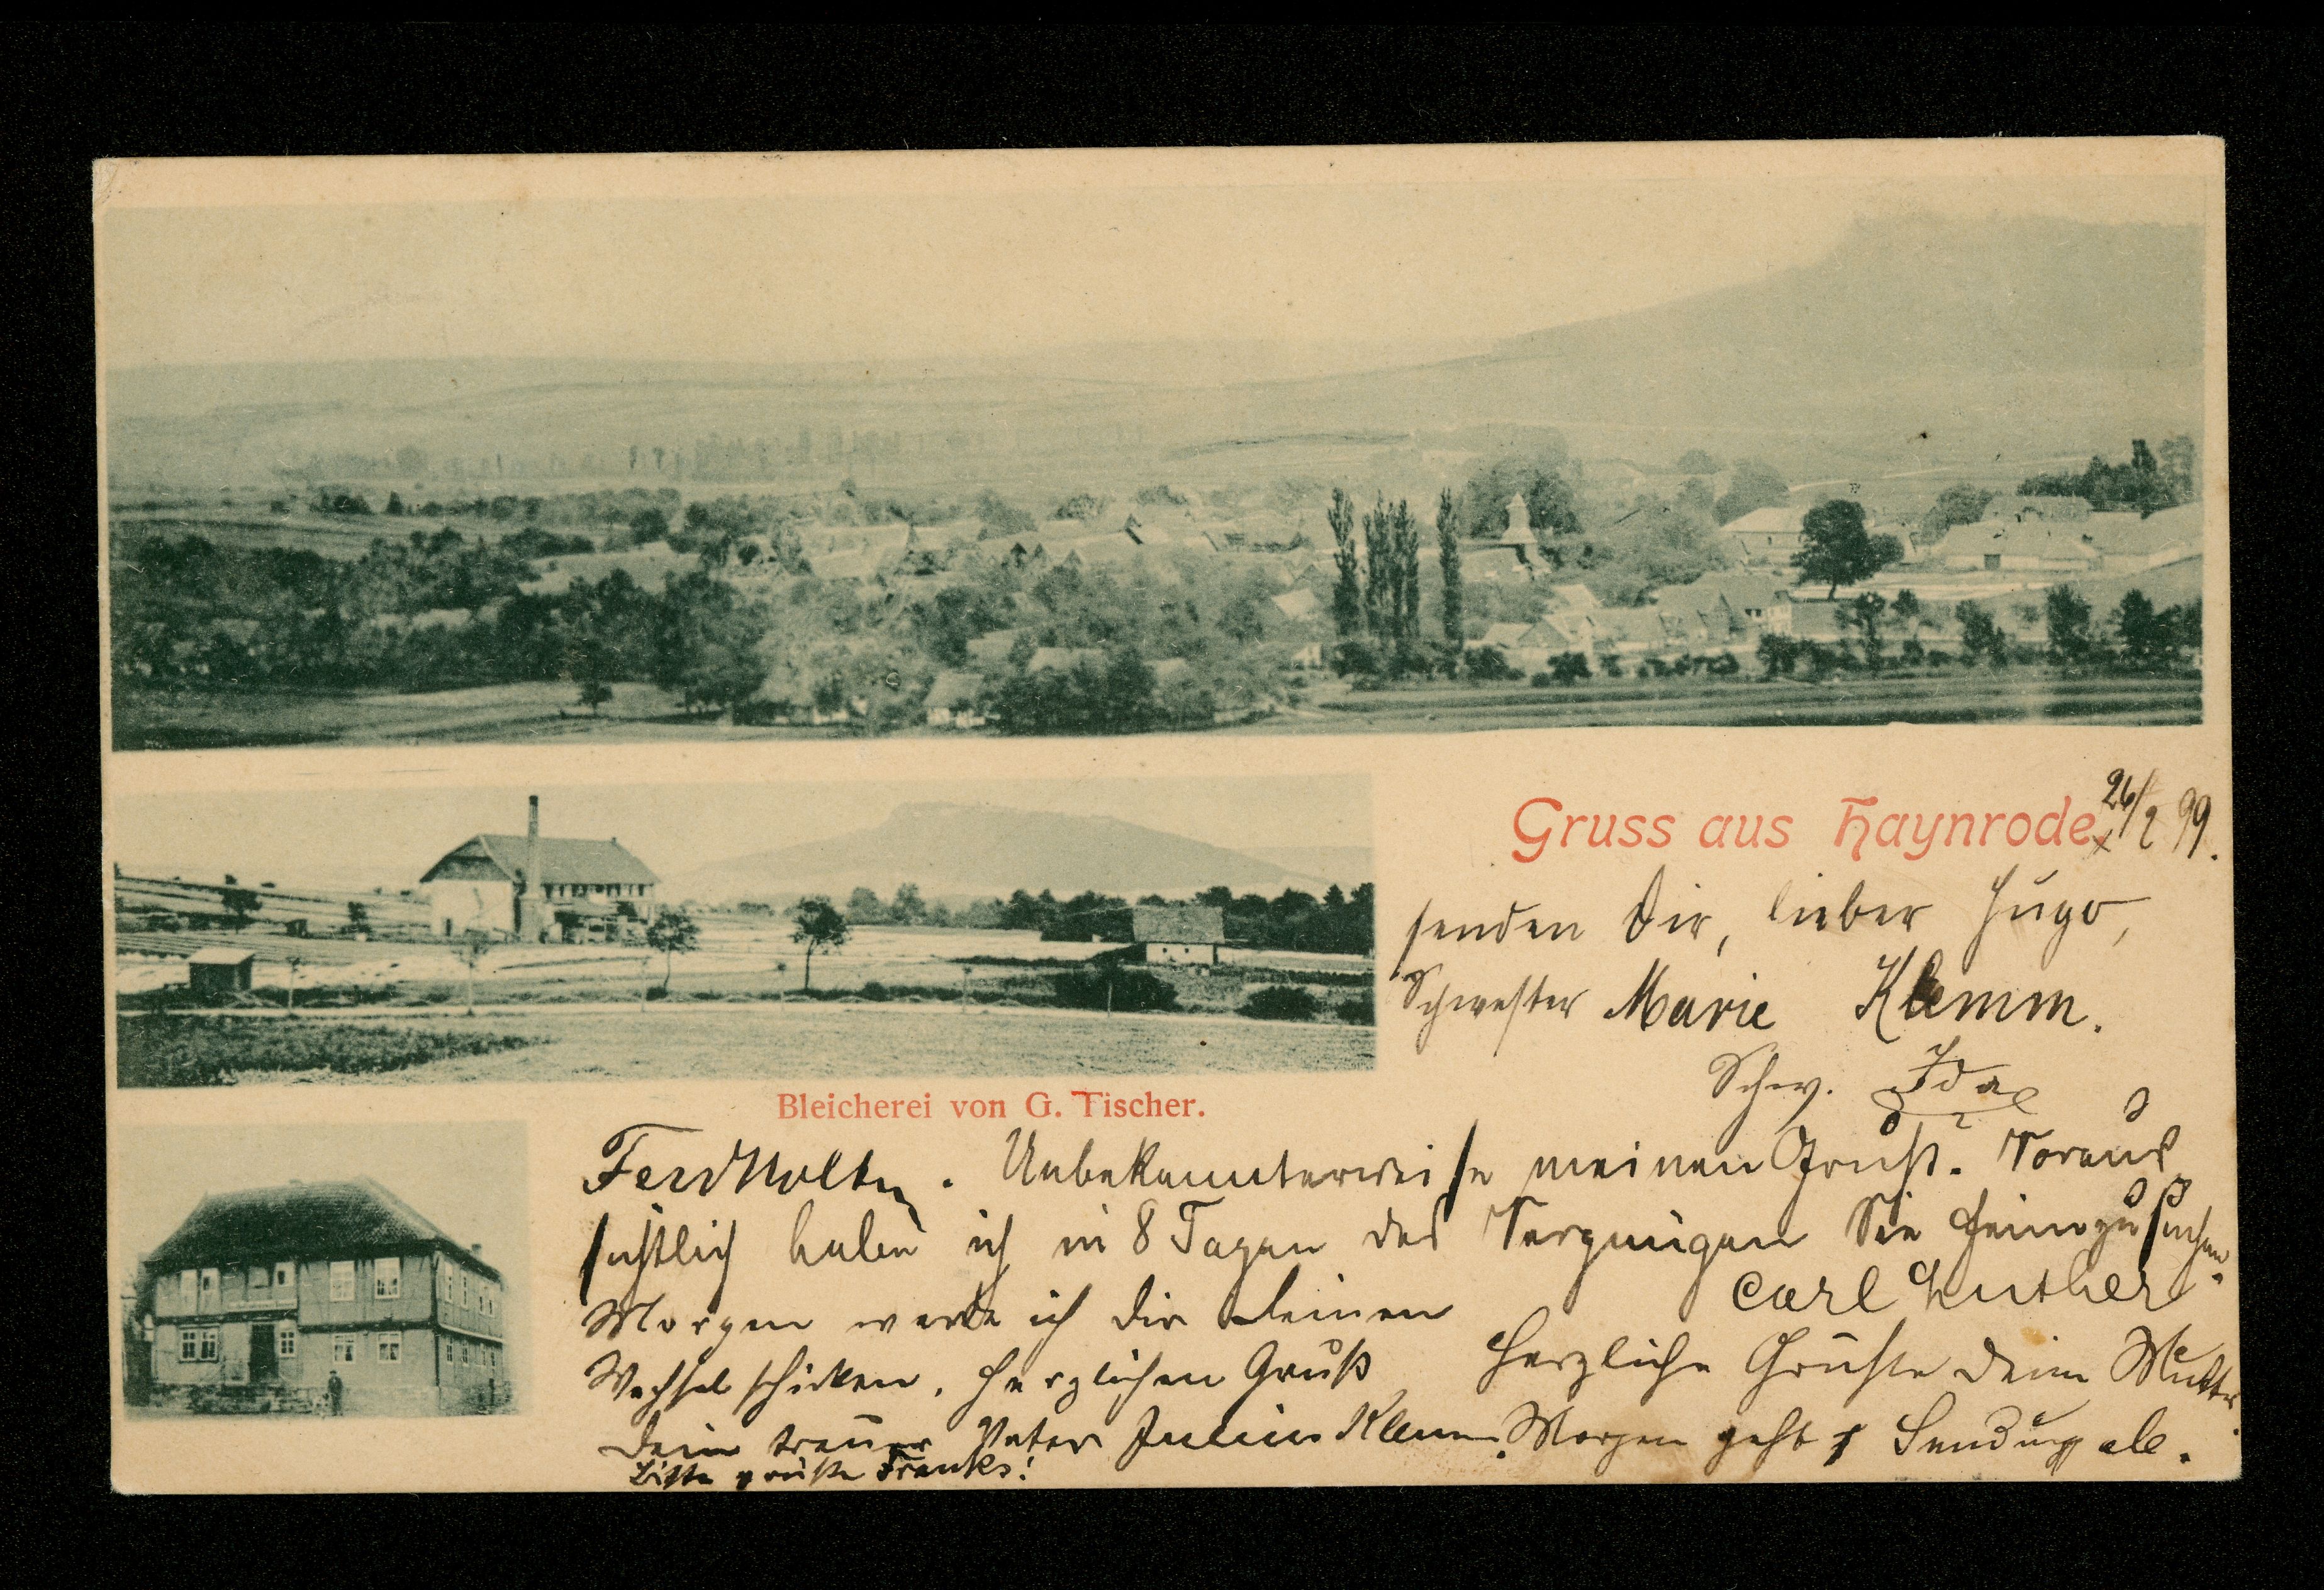 Gruss aus Haynrode
26/2 99.
senden Dir, lieber Hugo,
Schwester Marie Klemm.
Schw. Ida
Bleicherei von G. Tischer.
Unbekannterweise meinen Gruß. Voraus
sichtlich habe ich in 8 Tagen das Vergnügen Sie heimzusuchen.
Carl Luther
Morgen werde ich Dir Deinen
Wechsel schicken. Herzlichen Gruß
Dein treuer Vater Julius Klemm.
Bitte grüße Franks!
Herzliche Grüße Deine Mutter
Morgen geht 1 Sendung ab.